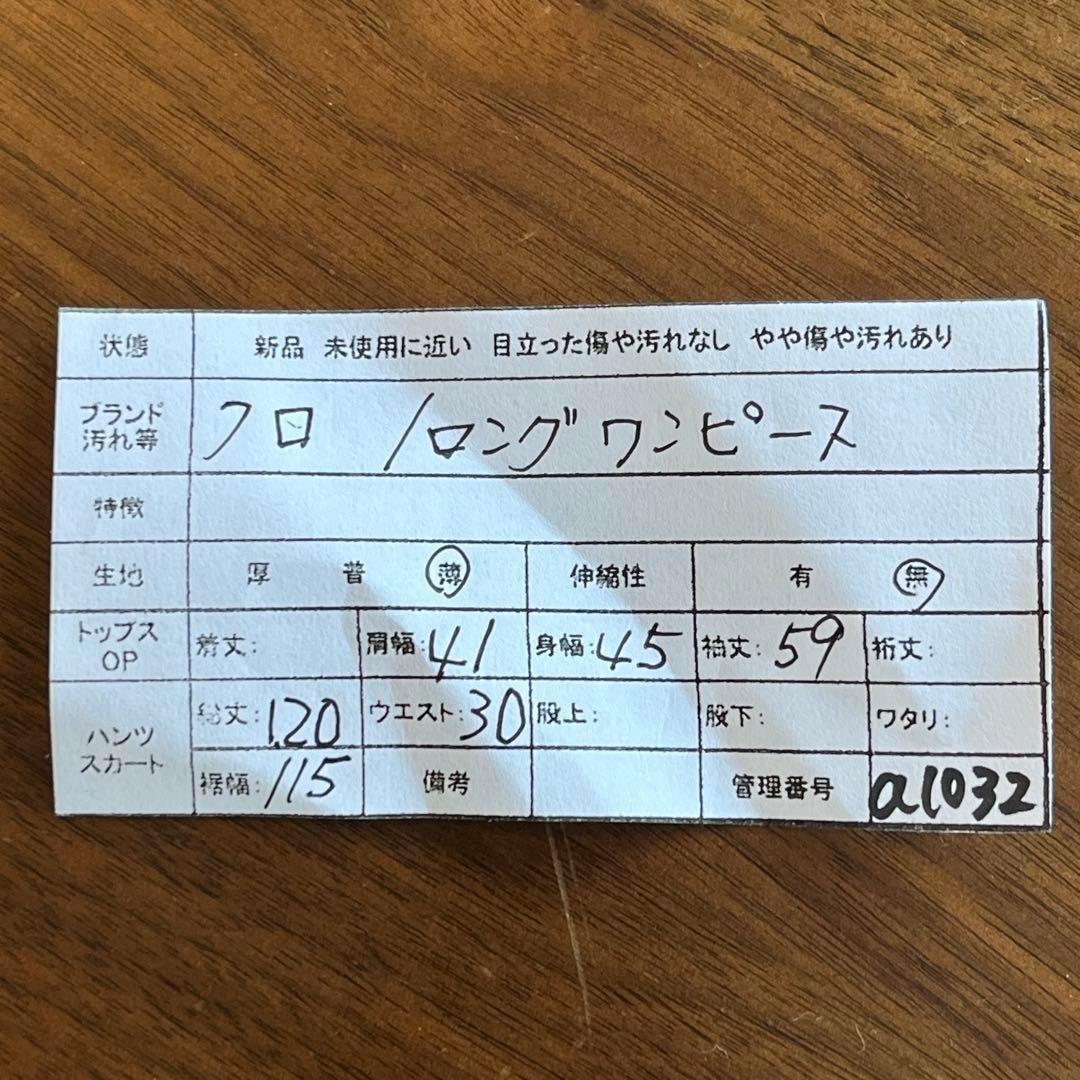 状態 新品 未使用に近い 目立った傷や汚れなし やや傷や汚れあり
ブランド
汚れ等
フロ /ロングワンピース
特徴
生地 厚 普 薄 伸縮性 有 無
トップス
OP
着丈: 肩幅:41 身幅:45 袖丈:59 裄丈:
パンツ
スカート
総丈:120 ウエスト:30 股上: 股下: ワタリ:
裾幅:115 備考 管理番号 a1032